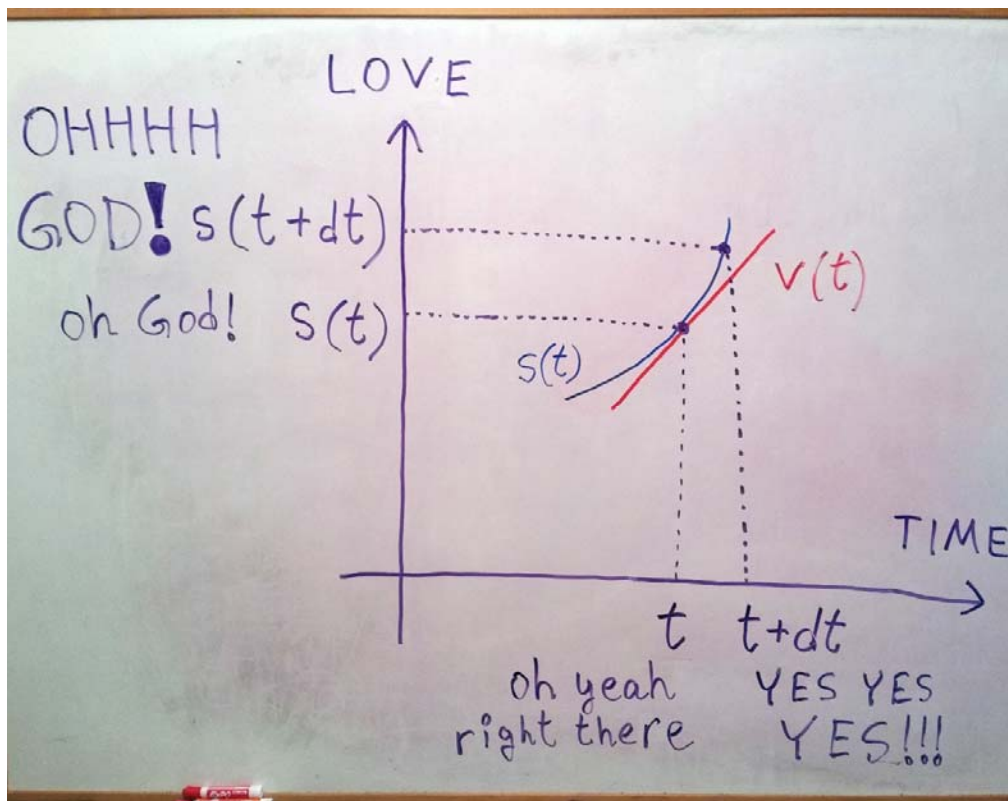 LOVE
OHHHH
GOD! s(t+dt)
oh God! S(t)
V(t)
s(t)
TIME
t t+dt
oh yeah YES YES
right there YES!!!